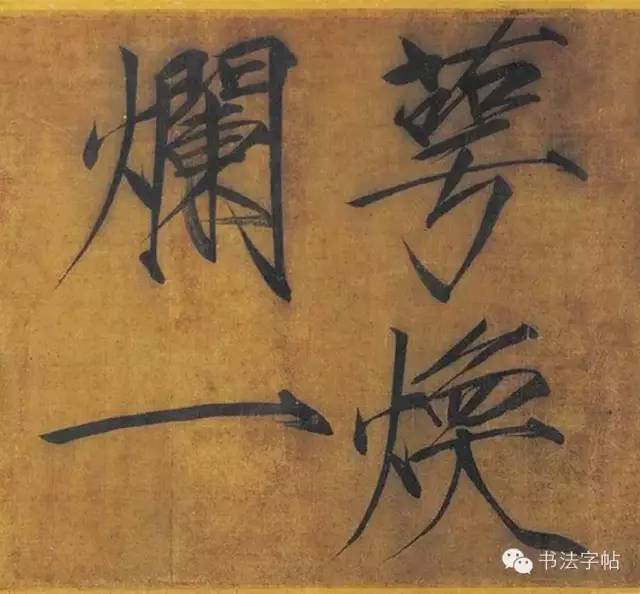 萼煥
爛一
书法字帖